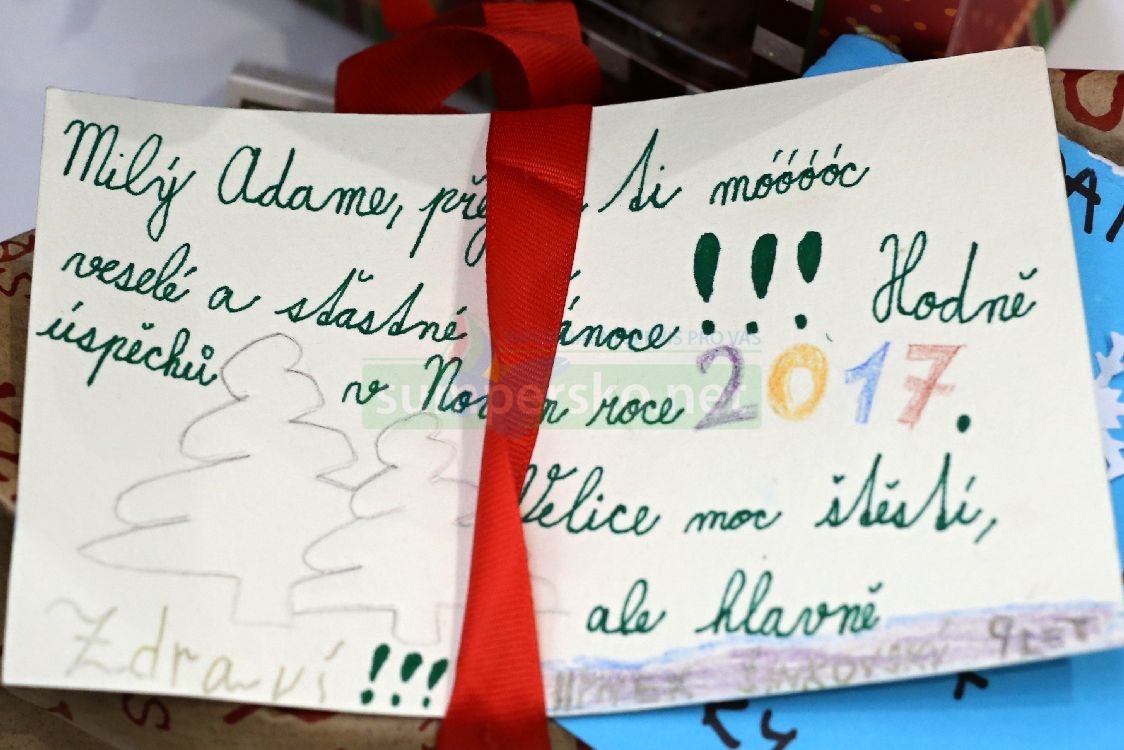 Milý Adame, ti móóóóc
veselé a šťastné ánoce !!! Hodně
úspěchů v roce 2017.
Velice moc štěstí,
ale hlavně
Zdraví !!!
9 LET
sumpersko.net